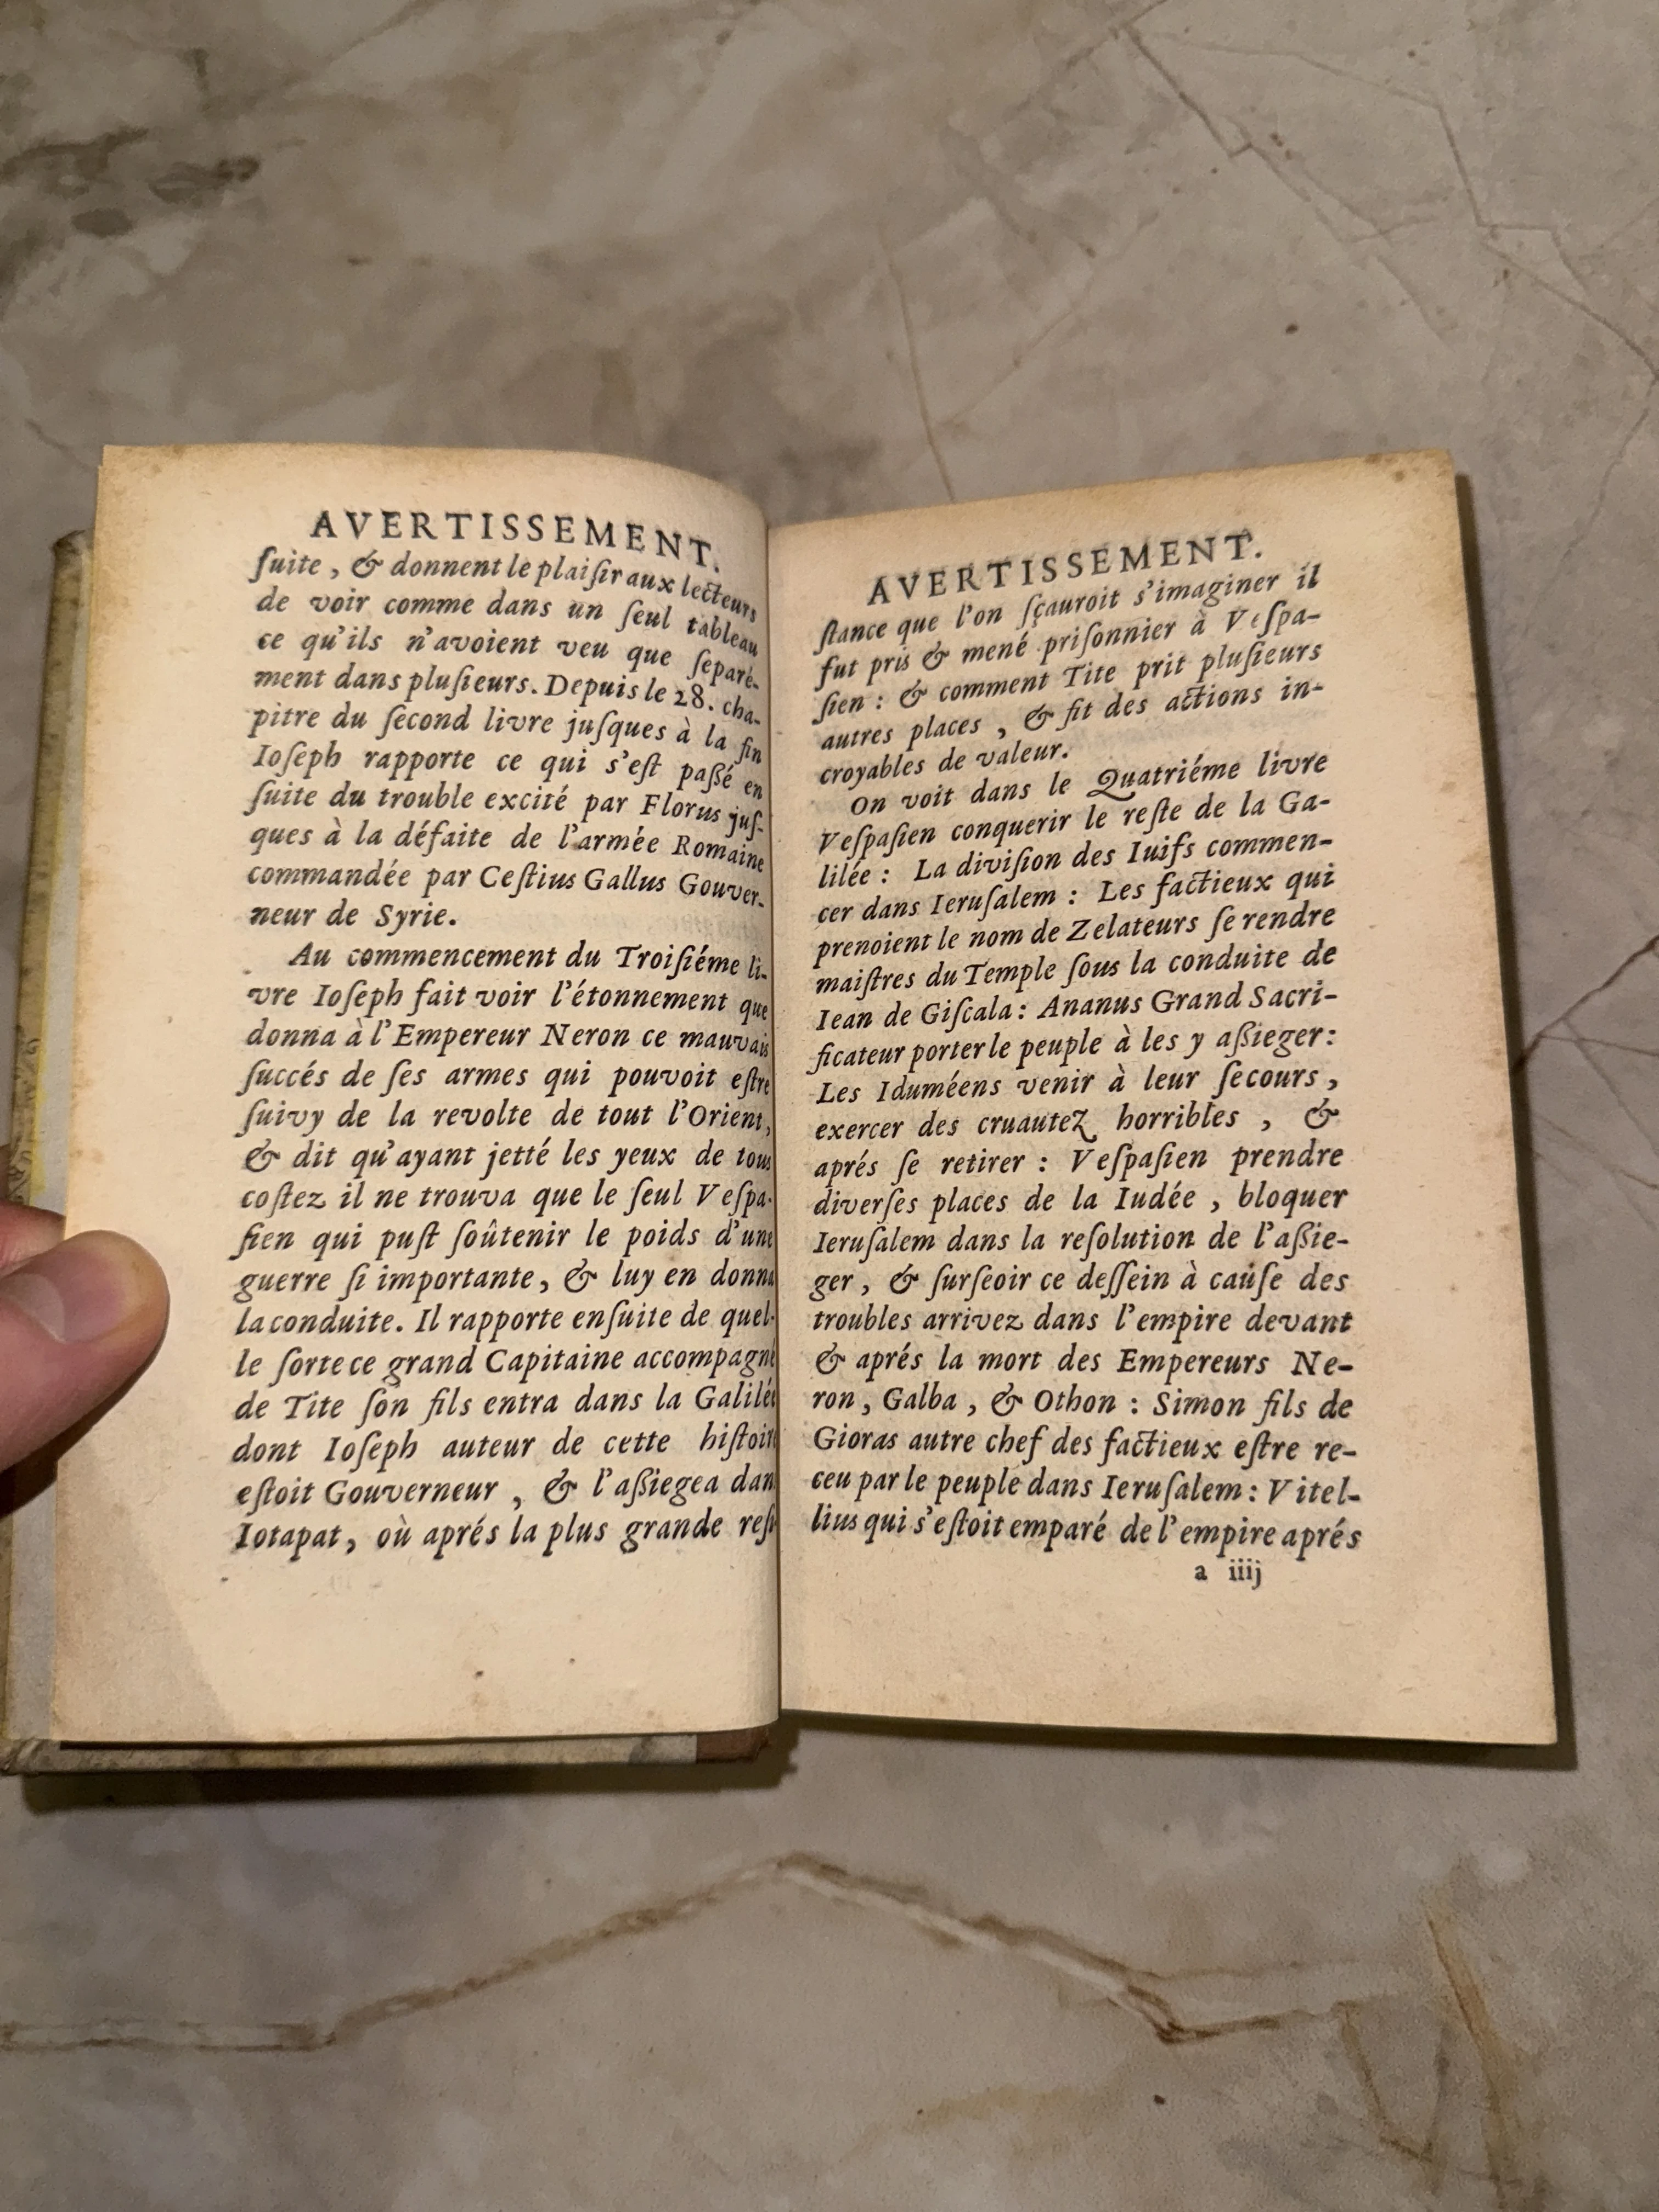 AVERTISSEMENT.
ſuite, & donnent le plaiſir aux lecteurs
de voir comme dans un ſeul tableau
ce qu'ils n'avoient veu que ſeparé-
ment dans pluſieurs. Depuis le 28. cha-
pitre du ſecond livre juſques à la fin
Ioſeph rapporte ce qui s'eſt paßé en
ſuite du trouble excité par Florus juſ-
ques à la défaite de l'armée Romaine
commandée par Ceſtius Gallus Gouver-
neur de Syrie.
Au commencement du Troiſiéme li-
vre Ioſeph fait voir l'étonnement que
donna à l'Empereur Neron ce mauvais
ſuccés de ſes armes qui pouvoit eſtre
ſuivy de la revolte de tout l'Orient,
& dit qu'ayant jetté les yeux de tous
coſtez il ne trouva que le ſeul Veſpa-
ſien qui puſt ſoûtenir le poids d'une
guerre ſi importante, & luy en donna
la conduite. Il rapporte enſuite de quel-
le ſorte ce grand Capitaine accompagné
de Tite ſon fils entra dans la Galilée
dont Ioſeph auteur de cette hiſtoire
eſtoit Gouverneur, & l'aßiegea dan
Iotapat, où aprés la plus grande reſi
AVERTISSEMENT.
ſtance que l'on ſçauroit s'imaginer il
fut pris & mené priſonnier à Veſpa-
ſien : & comment Tite prit pluſieurs
autres places, & fit des actions in-
croyables de valeur.
On voit dans le Quatriéme livre
Veſpaſien conquerir le reſte de la Ga-
lilée : La diviſion des Iuifs commen-
cer dans Ieruſalem : Les factieux qui
prenoient le nom de Zelateurs ſe rendre
maiſtres du Temple ſous la conduite de
Iean de Giſcala : Ananus Grand Sacri-
ficateur porter le peuple à les y aßieger :
Les Iduméens venir à leur ſecours,
exercer des cruautez horribles, &
aprés ſe retirer : Veſpaſien prendre
diverſes places de la Iudée, bloquer
Ieruſalem dans la reſolution de l'aßie-
ger, & ſurſeoir ce deſſein à cauſe des
troubles arrivez dans l'empire devant
& aprés la mort des Empereurs Ne-
ron, Galba, & Othon : Simon fils de
Gioras autre chef des factieux eſtre re-
ceu par le peuple dans Ieruſalem : Vitel-
lius qui s'eſtoit emparé de l'empire aprés
a iiij